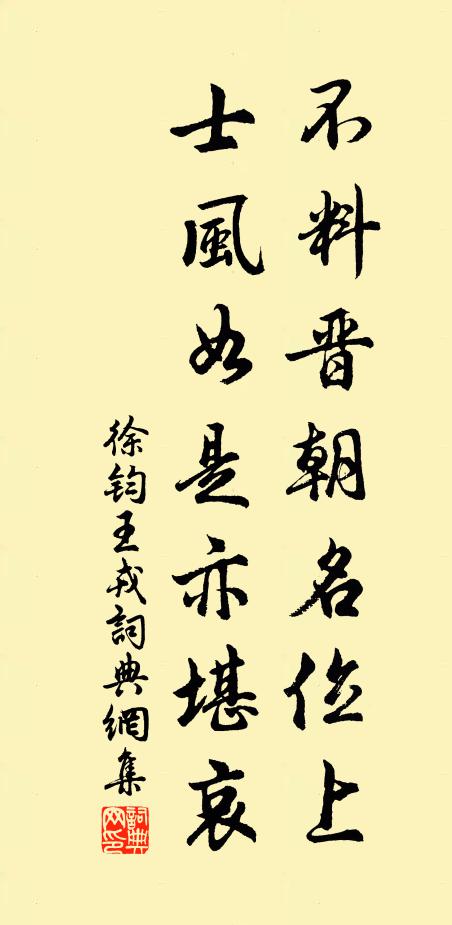 不料晋朝名位上
士風如是亦堪哀
徐鈞王戎詞典網集
詞典网印